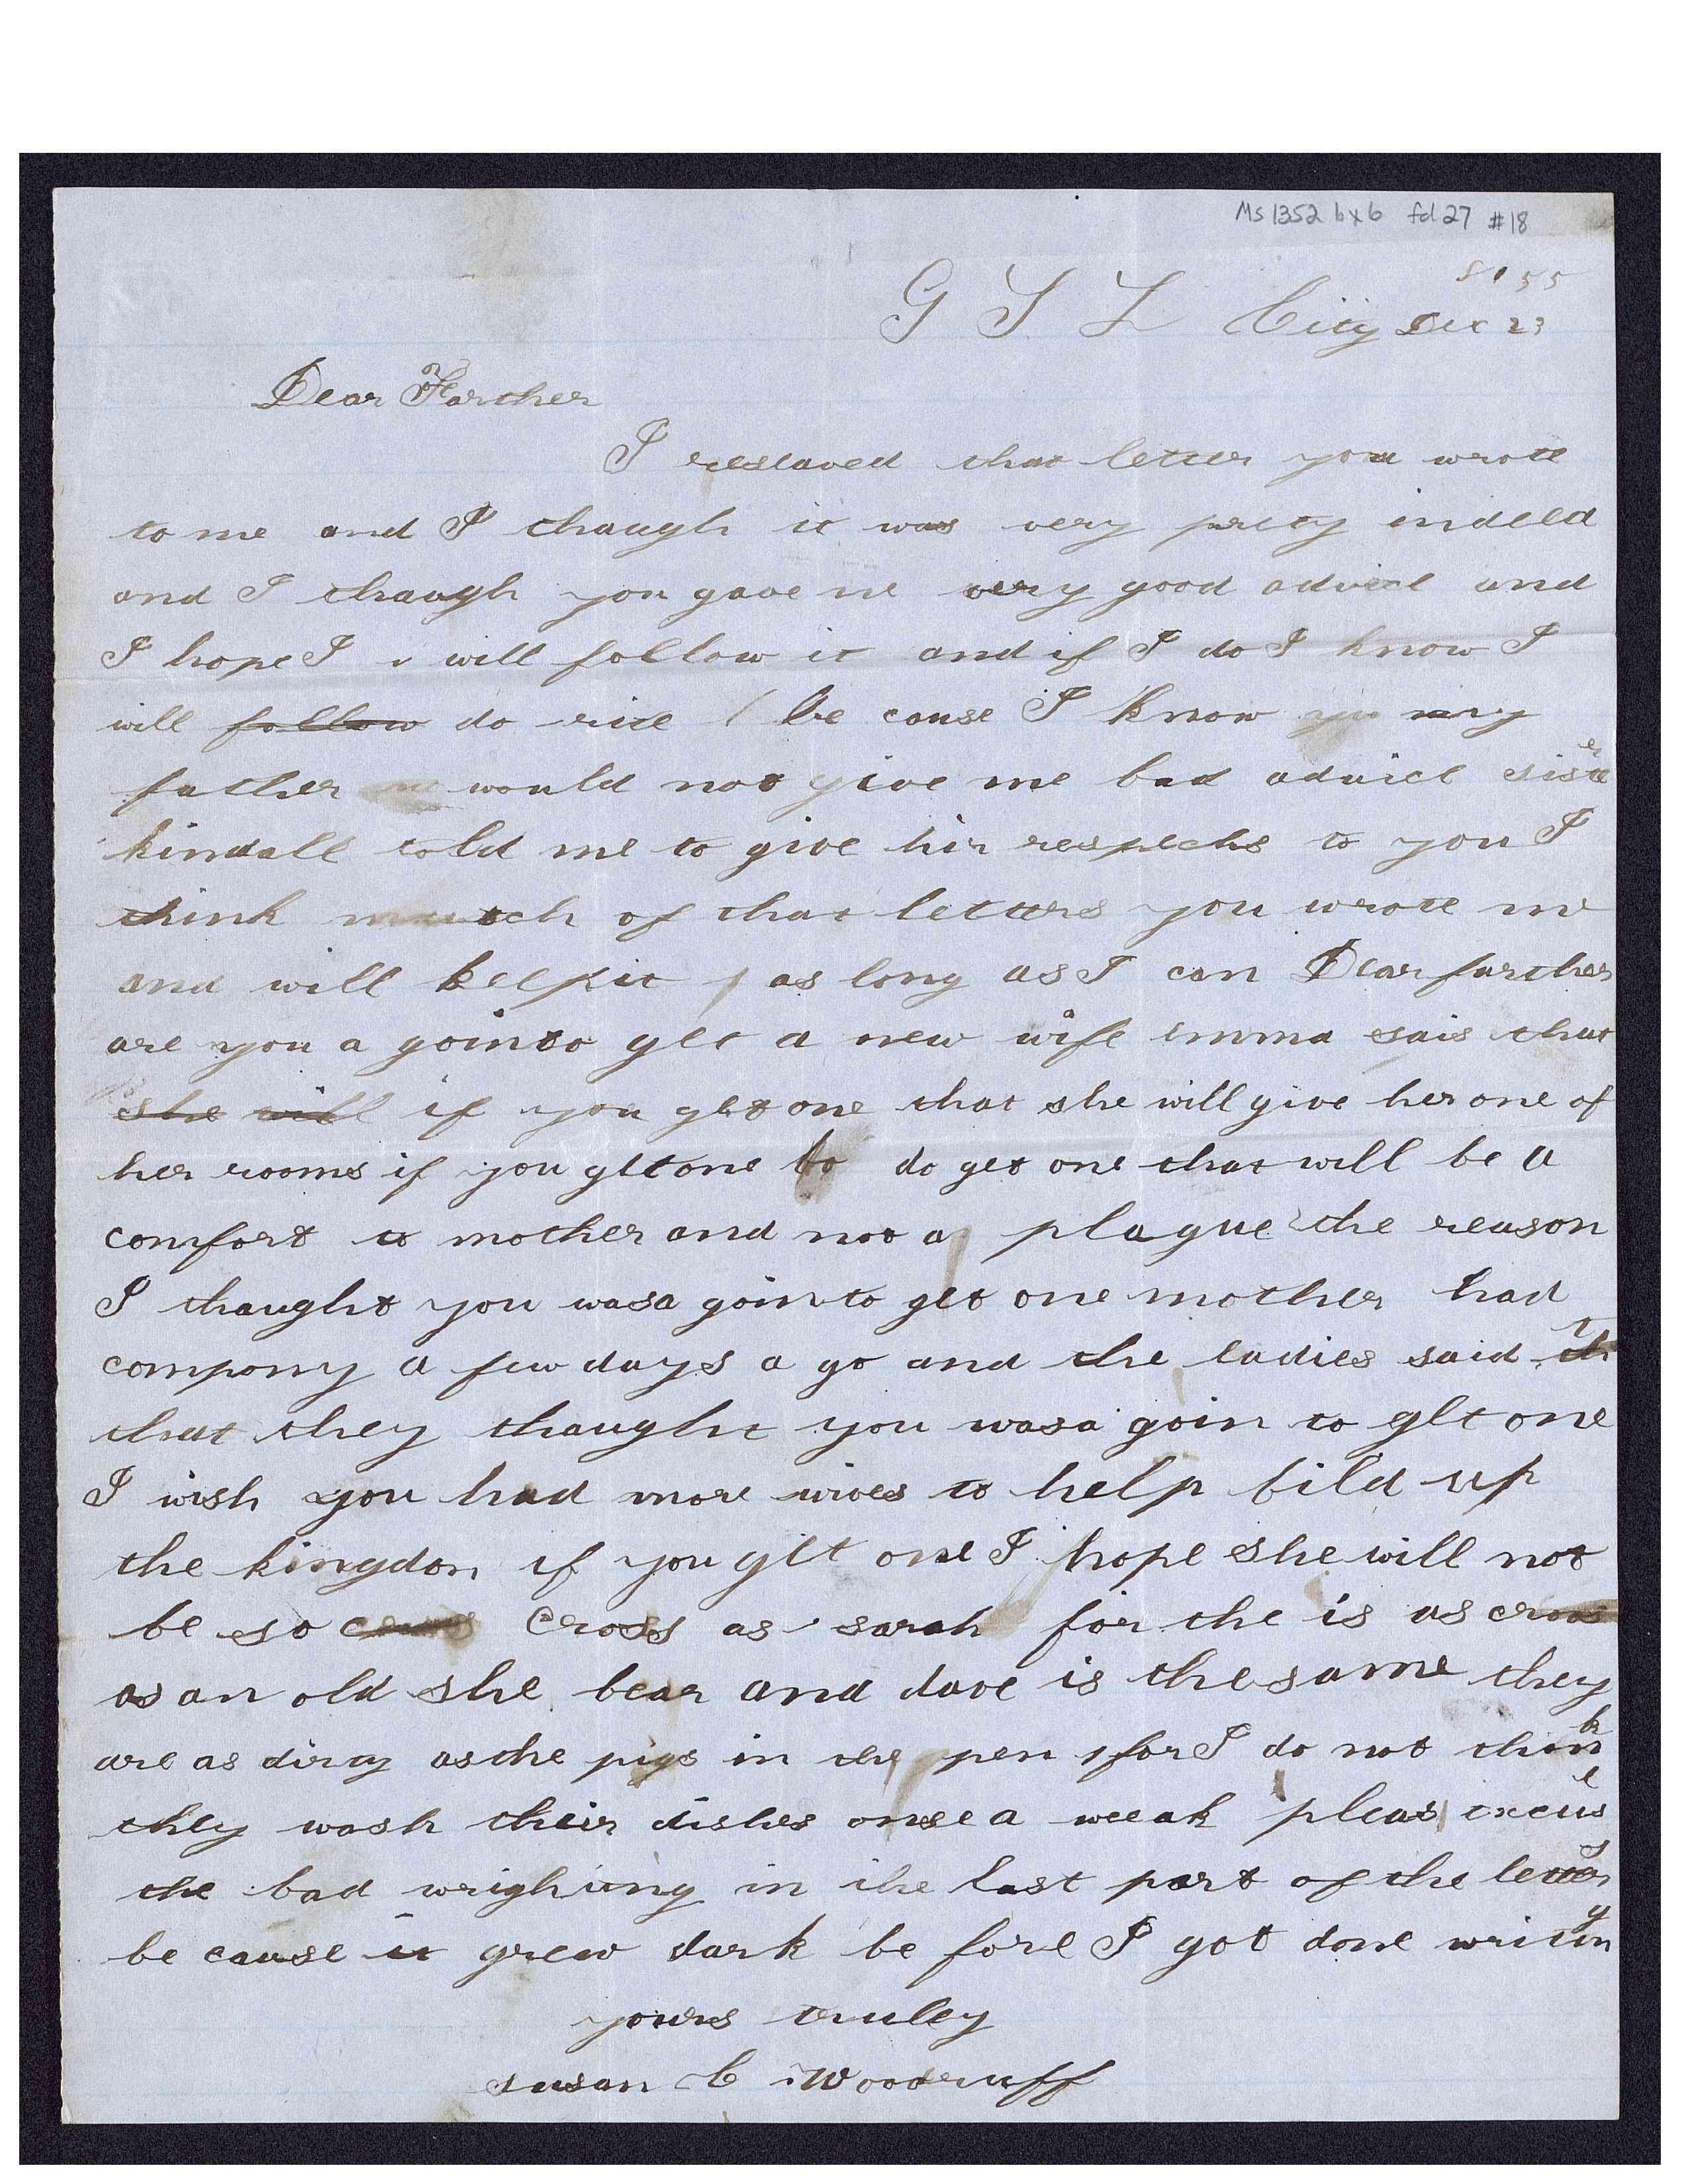 Ms 1352 bx 6 fd 27 #18
1855
G S L City Dec 23
Dear Farther
I reseaved that letter you wrote
to me and I though it was very prety indeed
and I though you gave me very good advice and
I hope I will follow it and if I do I know I
will follow do rite be cause I know my
father would not give me bad advice sister
kindall told me to give hir respechs to you I
think mutch of that letters you wrote me
and will keep it as long as I can Dear farther
are you a gointo get a new wife emma sais that
she will if you get one that she will give her one of
her rooms if you get one do get one that will be a
comfort to mother and not a plague the reason
I thaught you wasa gointo get one mother had
compony a few days a go and the ladies said th
that they thaught you wasa goin to get one
I wish you had more wives to help bild up
the kingdon if you get one I hope she will not
be so cross as sarah for the is as cross
as an old she bear and dave is the same they
are as dirty as the pigs in the pen for I do not think
they wash their dishes onse a weeak pleas excuse
the bad wrighting in the last part of the letters
be cause it grew dark be fore I got done writing
yours truley
susan C Woodruff